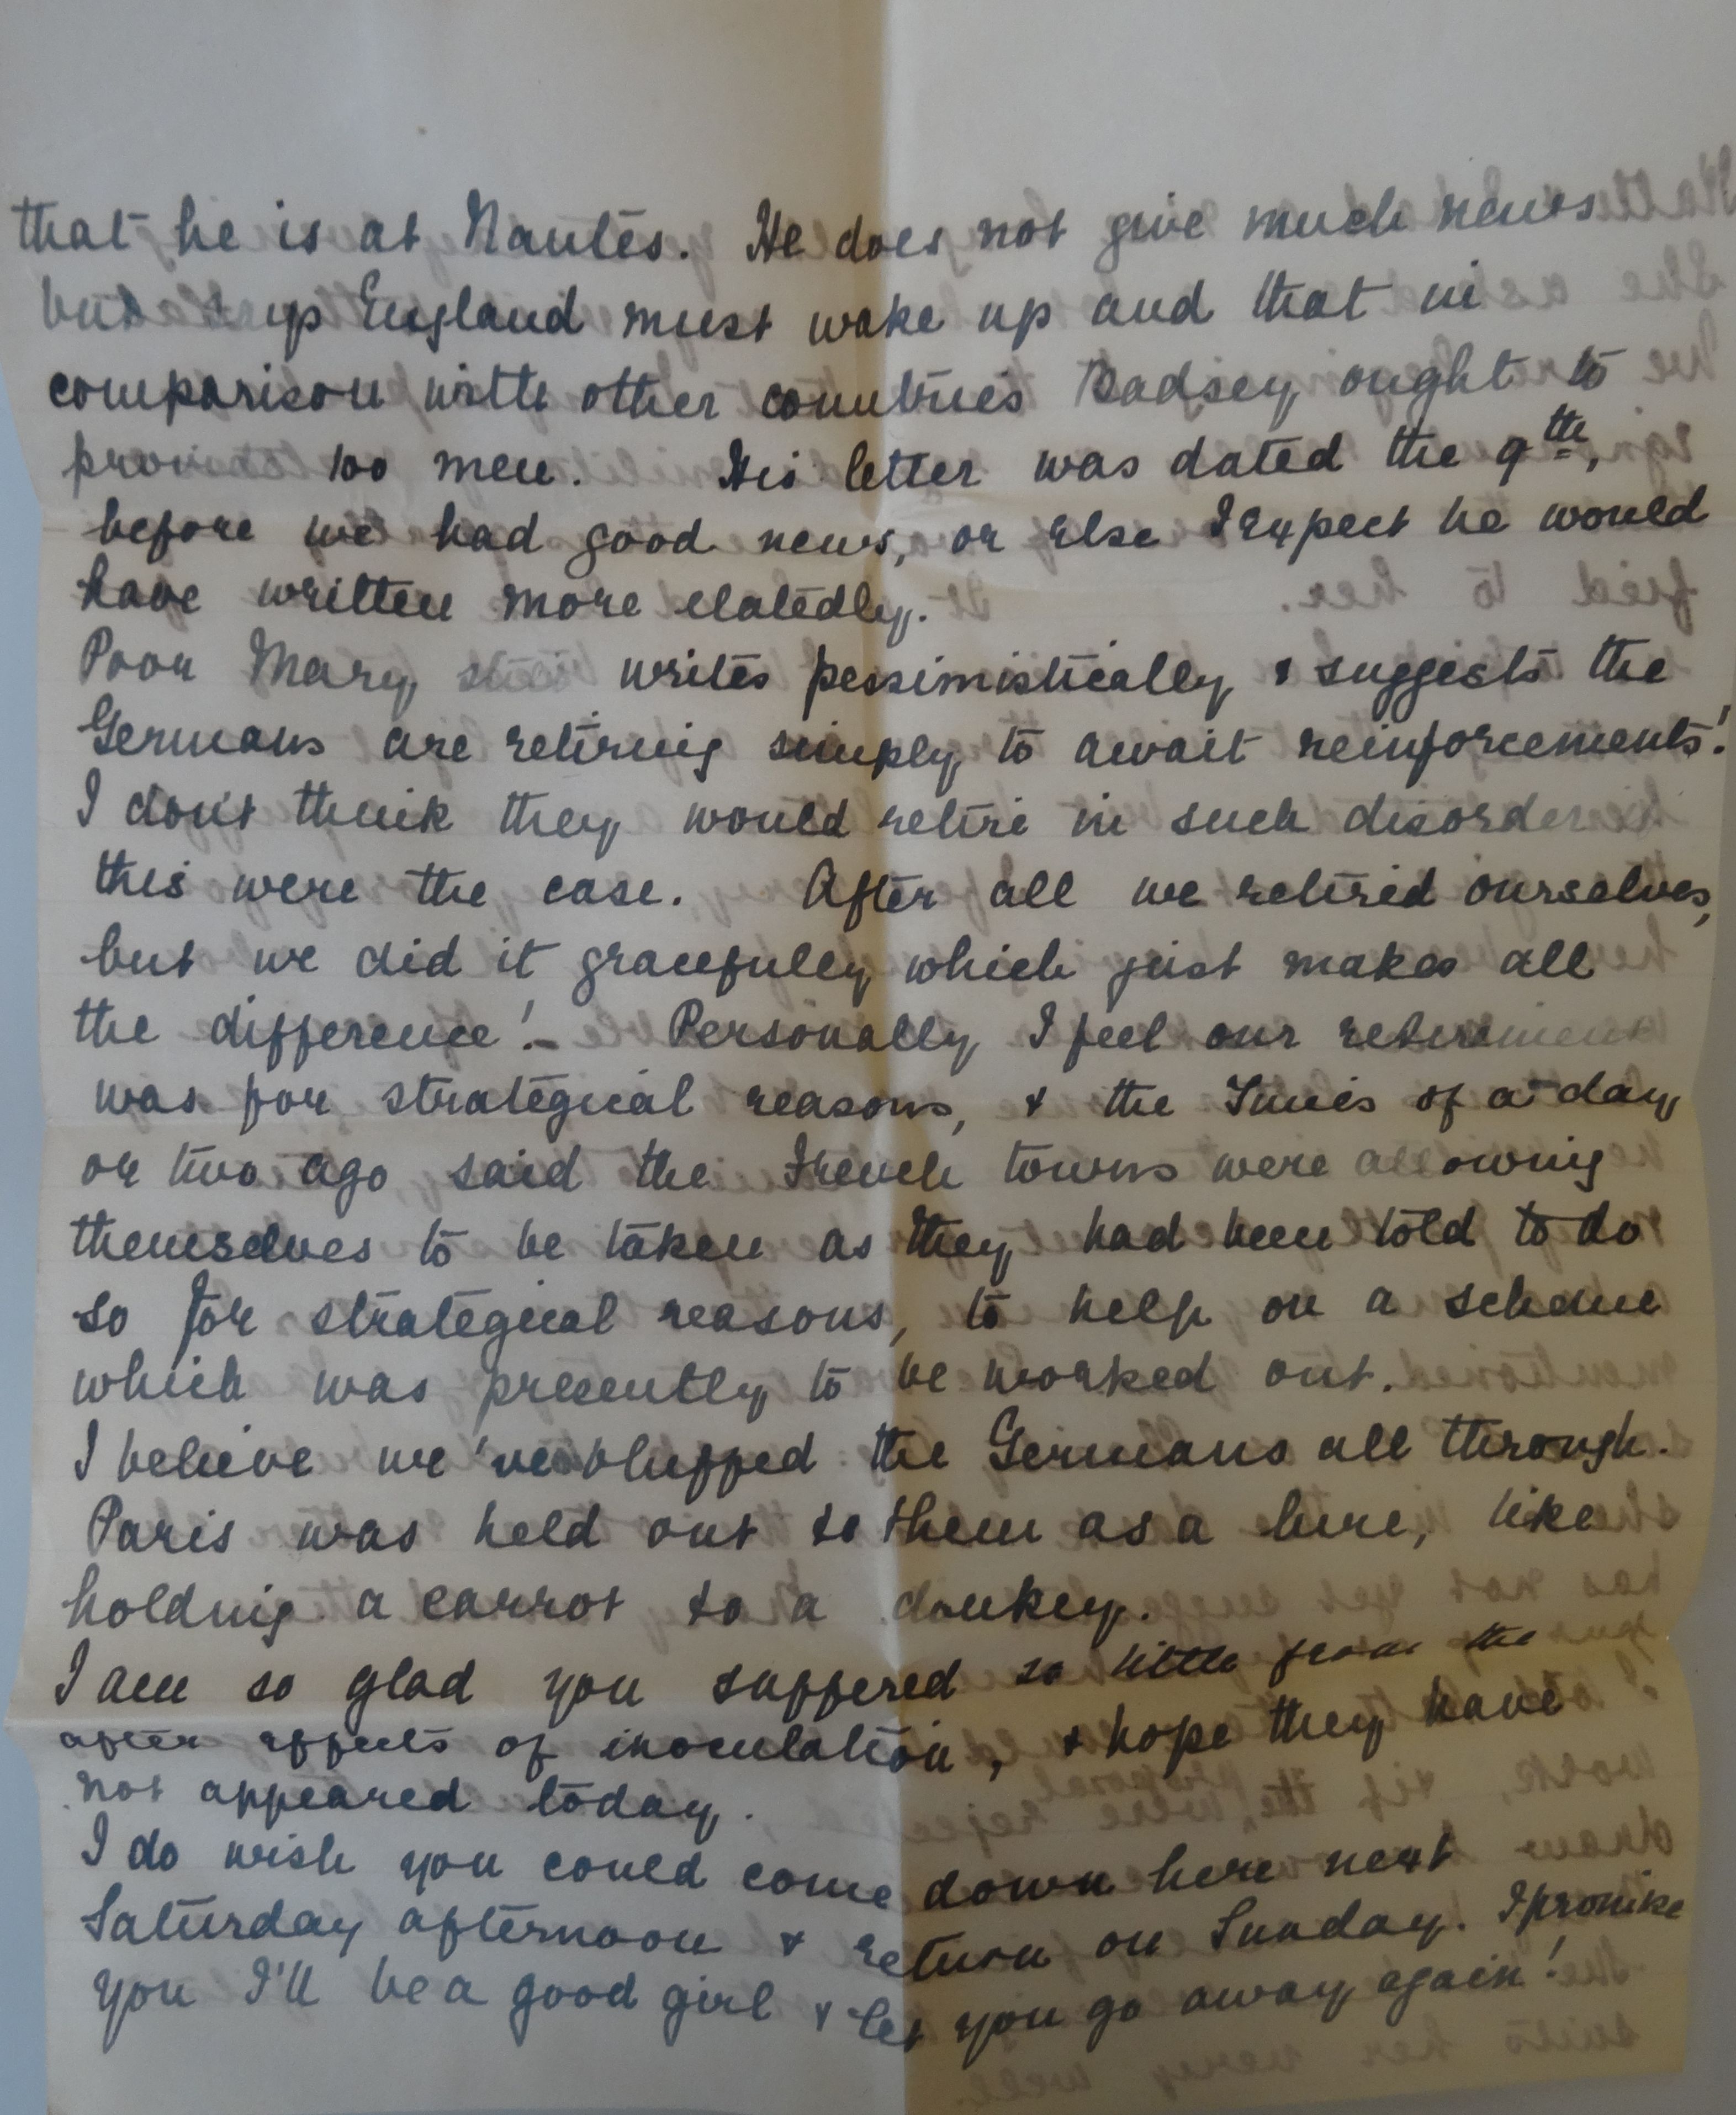 that he is at Nantes. He does not give much news
but England must wake up and that in
comparison with other countries Badsey ought to
provide 100 men. His letter was dated the 9th,
before we had good news, or else I expect he would
have written more elatedly.
Poor Mary writes pessimistically & suggests the
Germans are retiring simply to await reinforcements!
I don't think they would retire in such disorder if
this were the case. After all we retired ourselves,
but we did it gracefully which just makes all
the difference! - Personally I feel our retirement
was for strategical reasons, & the Times of a day
or two ago said the French towns were allowing
themselves to be taken as they had been told to do
so for strategical reasons, to help on a scheme
which was presently to be worked out.
I believe we've bluffed the Germans all through.
Paris was held out to them as a lure, like
holding a carrot to a donkey.
I am so glad you suffered so little from the
after effects of inoculation, & hope they have
not appeared today.
I do wish you could come down here next
Saturday afternoon & return on Sunday. I promise
you I'll be a good girl & let you go away again!